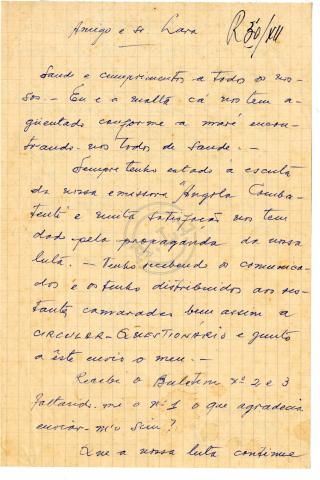 Amigo e sr Lara
R 30/XII
Saude e cumprimentos a todos os nos-
sos. — Eu e a malta cá nos tem a-
guentado conforme a maré encon-
trando-nos todos de saude. —
Sempre tenho estado à escuta
da nossa emissora "Angola Comba-
tente" e muita satisfação nos tem
dado pela propaganda da nossa
luta. — Tenho recebido os comunica-
dos e os tenho distribuidos aos res-
tantes camaradas bem assim a
CIRCULAR-QUESTIONÁRIO e junto
a êste envio o meu. —
Recebi o Buletim nº 2 e 3
faltando-me o nº 1 o que agradecia
enviar-m'o sim?
Que a nossa luta continue